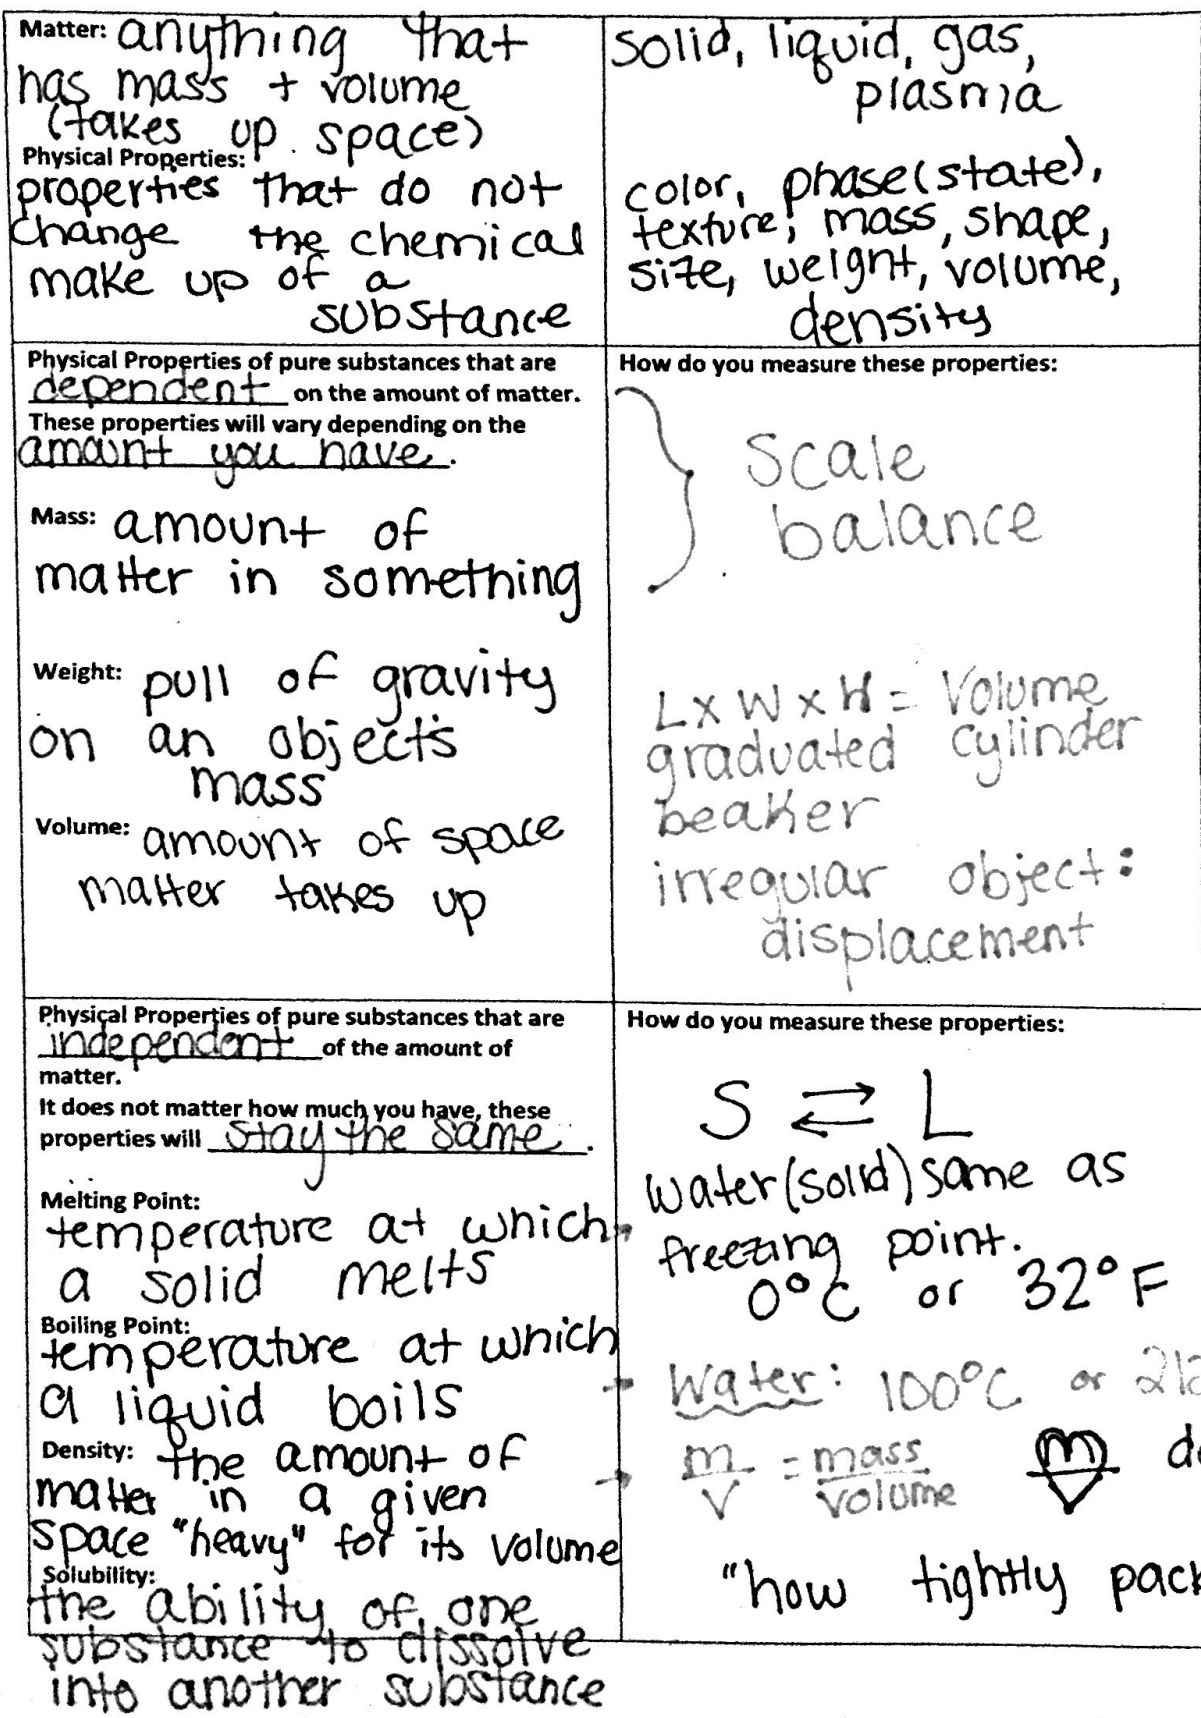 Matter: anything that
has mass + volume
(takes up space)
Physical Properties:
properties that do not
change the chemical
make up of a
substance
solid, liquid, gas,
plasma
color, phase(state),
texture, mass, shape,
size, weight, volume,
density
Physical Properties of pure substances that are
dependent on the amount of matter.
These properties will vary depending on the
amount you have.
Mass: amount of
matter in something
Weight: pull of gravity
on an objects
mass
Volume: amount of space
matter takes up
How do you measure these properties:
Scale
balance
L x W x H = Volume
graduated cylinder
beaker
irregular object:
displacement
Physical Properties of pure substances that are
independent of the amount of
matter.
It does not matter how much you have, these
properties will stay the same.
Melting Point:
temperature at which
a solid melts
Boiling Point:
temperature at which
a liquid boils
Density: the amount of
matter in a given
space "heavy" for its volume
Solubility:
the ability of one
substance to dissolve
into another substance
How do you measure these properties:
S ⇄ L
water(solid) same as
freezing point.
0°C or 32°F
→ Water: 100°C or 212
→ m/v = mass/volume m/v
"how tightly pack